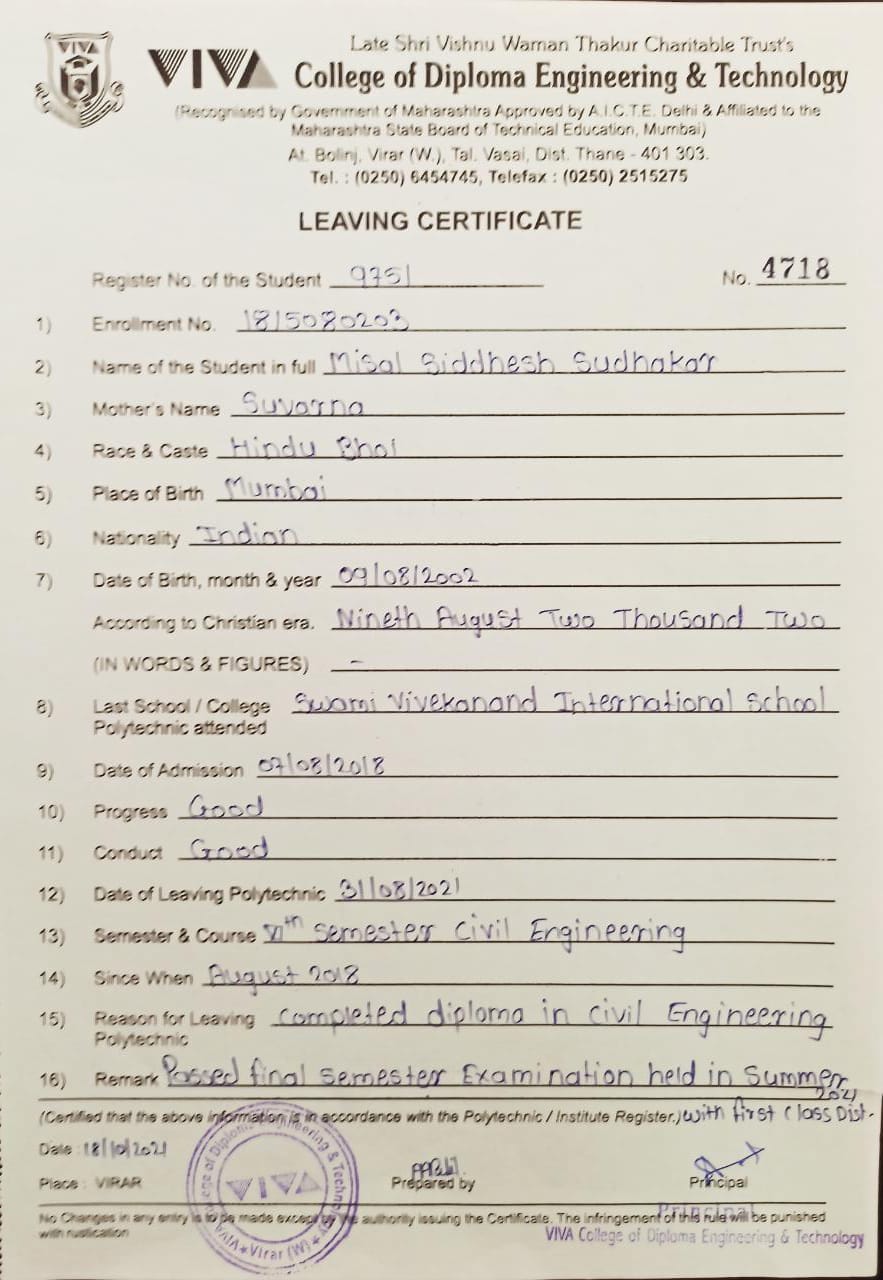 VIVA
VIVA
Late Shri Vishnu Waman Thakur Charitable Trust's
College of Diploma Engineering & Technology
(Recognised by Government of Maharashtra Approved by A.I.C.T.E. Delhi & Affiliated to the
Maharashtra State Board of Technical Education, Mumbai)
At. Bolinj, Virar (W.), Tal. Vasai, Dist. Thane - 401 303.
Tel. : (0250) 6454745, Telefax : (0250) 2515275
LEAVING CERTIFICATE
Register No. of the Student 9751 No. 4718
1) Enrollment No. 1815080203
2) Name of the Student in full Misal Siddhesh Sudhakar
3) Mother's Name Suvarna
4) Race & Caste Hindu Bhoi
5) Place of Birth Mumbai
6) Nationality Indian
7) Date of Birth, month & year 09/08/2002
According to Christian era. Nineth August Two Thousand Two
(IN WORDS & FIGURES) -
8) Last School / College Swami Vivekanand International School
Polytechnic attended
9) Date of Admission 07/08/2018
10) Progress Good
11) Conduct Good
12) Date of Leaving Polytechnic 31/08/2021
13) Semester & Course VIth Semester Civil Engineering
14) Since When August 2018
15) Reason for Leaving completed diploma in civil Engineering
Polytechnic
16) Remark Passed final semester Examination held in Summer
2021
(Certified that the above information is in accordance with the Polytechnic / Institute Register.) with first Class Dist.
Date : 18/10/2021
Place : VIRAR Prepared by Principal
No Changes in any entry is to be made except by the authority issuing the Certificate. The infringement of this rule will be punished
with rustication
Principal
VIVA College of Diploma Engineering & Technology
VIVA College of Diploma Engineering & Technology
VIVA
Virar (W)